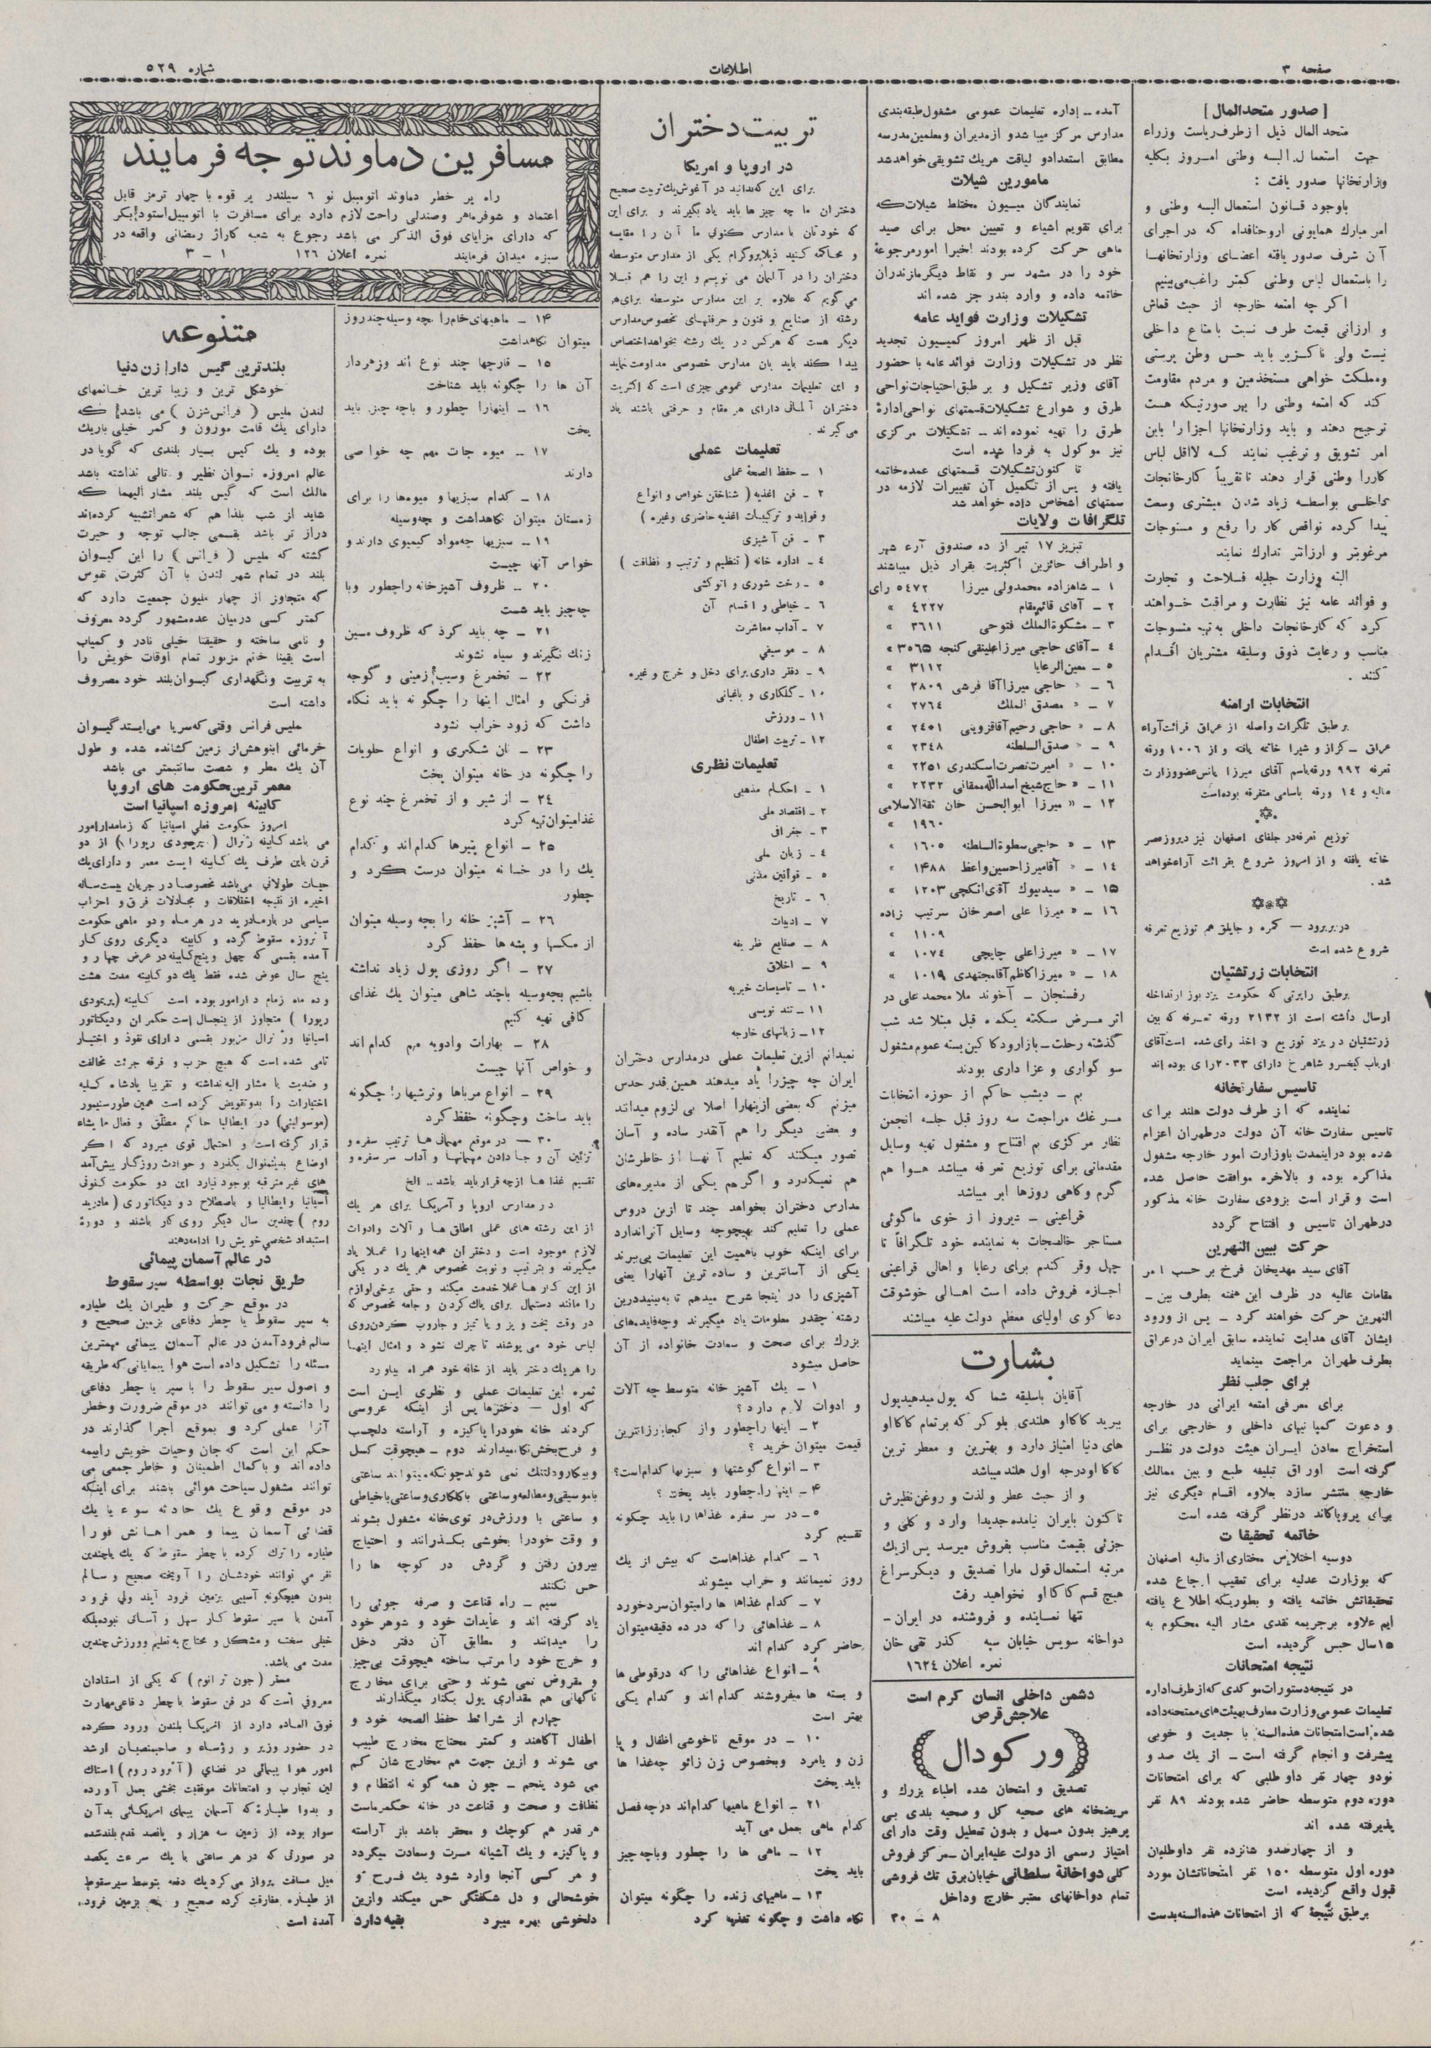 صفحه ۳
اطلاعات
شماره ۵۲۹
[ صدور متحدالمال ]
متحدالمال ذیل از طرف ریاست وزراء
جهت استعمال البسه وطنی امروز بکلیه
وزارتخانها صدور یافت :
باوجود قانون استعمال البسه وطنی و
امر مبارك همایونی ارواحنافداه که در اجرای
آن شرف صدور یافته اعضای وزارتخانها
را باستعمال لباس وطنی کمتر راغب می‌بینیم
اگر چه امتعه خارجه از حیث قماش
و ارزانی قیمت طرف نسبت با متاع داخلی
نیست ولی ناگزیر باید حس وطن پرستی
و مملکت خواهی مستخدمین و مردم مقاومت
کند که امتعه وطنی را بهر صورتیکه هست
ترجیح دهند و باید وزارتخانها اجزا را باین
امر تشویق و ترغیب نمایند که لااقل لباس
کار را وطنی قرار دهند تا تقریباً کارخانجات
داخلی بواسطه زیاد شدن مشتری وسعت
پیدا کرده نواقص کار را رفع و منسوجات
مرغوبتر و ارزانتر تدارك نمایند
البته وزارت جلیله فلاحت و تجارت
و فوائد عامه نیز نظارت و مراقبت خواهند
کرد که کارخانجات داخلی به تهیه منسوجات
مناسب و رعایت ذوق وسلیقه مشتریان اقدام
کنند .
انتخابات ارامنه
برطبق تلگرافات واصله از عراق قرائت آراء
عراق ـ کزاز و شیرا خاتمه یافته و از ۱۰۰۶ ورقه
تعرفه ۹۹۲ ورقه باسم آقای میرزا یانس عضو وزارت
مالیه و ۱۴ ورقه باسامی متفرقه بوده است
توزیع تعرفه در جلفای اصفهان نیز دیروز عصر
خاتمه یافته و از امروز شروع بقرائت آراء خواهد
شد .
در بربرود — کمره و جاپلق هم توزیع تعرفه
شروع شده است
انتخابات زرتشتیان
برطبق راپرتی که حکومت یزد بوزارتداخله
ارسال داشته است از ۲۱۳۲ ورقه تعرفه که بین
زرتشتیان در یزد توزیع و اخذ رای شده است آقای
ارباب کیخسرو شاهرخ دارای ۲۰۳۳ رای بوده اند
تاسیس سفارتخانه
نماینده که از طرف دولت هلند برای
تاسیس سفارت خانه آن دولت درطهران اعزام
شده بود دراینمدت باوزارت امور خارجه مشغول
مذاکره بوده و بالاخره موافقت حاصل شده
است و قرار است بزودی سفارت خانه مذکور
درطهران تاسیس و افتتاح گردد
حرکت بین النهرین
آقای سید مهدیخان فرخ بر حسب امر
مقامات عالیه در ظرف این هفته بطرف بین ـ
النهرین حرکت خواهند کرد ـ پس از ورود
ایشان آقای هدایت نماینده سابق ایران درعراق
بطرف طهران مراجعت مینماید
برای جلب نظر
برای معرفی امتعه ایرانی در خارجه
و دعوت کمپانیهای داخلی و خارجی برای
استخراج معادن ایران هیئت دولت در نظر
گرفته است اوراق تبلیغه طبع و بین ممالك
خارجه منتشر سازد بعلاوه اقسام دیگری نیز
برای پروپاکاند درنظر گرفته شده است
خاتمه تحقیقات
دوسیه اختلاس مختاری از مالیه اصفهان
که بوزارت عدلیه برای تعقیب ارجاع شده
تحقیقاتش خاتمه یافته و بطوریکه اطلاع یافته
ایم علاوه برجریمه نقدی مشار الیه محکوم به
۱۵ سال حبس گردیده است
نتیجه امتحانات
در نتیجه دستورات موکدی که از طرف اداره
تعلیمات عمومی وزارت معارف بهیئت‌های ممتحنه داده
شده است امتحانات هذه السنه با جدیت و خوبی
پیشرفت و انجام گرفته است ـ از یك صد و
نودو چهار نفر داوطلبی که برای امتحانات
دوره دوم متوسطه حاضر شده بودند ۸۹ نفر
پذیرفته شده اند
و از چهارصدو شانزده نفر داوطلبان
دوره اول متوسطه ۱۵۰ نفر امتحاناتشان مورد
قبول واقع گردیده است
برطبق نتیجهٔ که از امتحانات هذه السنه بدست
آمده ـ اداره تعلیمات عمومی مشغول طبقه‌بندی
مدارس مرکز میباشد و از مدیران و معلمین مدرسه
مطابق استعداد و لیاقت هریك تشویقی خواهد شد
مامورین شیلات
نمایندگان میسیون مختلط شیلات که
برای تقویم اشیاء و تعیین محل برای صید
ماهی حرکت کرده بودند اخیرا امور مرجوعهٔ
خود را در مشهد سر و نقاط دیگر مازندران
خاتمه داده و وارد بندر جز شده اند
تشکیلات وزارت فواید عامه
قبل از ظهر امروز کمیسیون تجدید
نظر در تشکیلات وزارت فوائد عامه با حضور
آقای وزیر تشکیل و بر طبق احتیاجات نواحی
طرق و شوارع تشکیلات قسمتهای نواحی ادارهٔ
طرق را تهیه نموده اند ـ تشکیلات مرکزی
نیز موکول به فردا شده است
تا کنون تشکیلات قسمتهای عمده خاتمه
یافته و پس از تکمیل آن تغییرات لازمه در
سمتهای اشخاص داده خواهد شد
تلگرافات ولایات
تبریز ۱۷ تیر از ده صندوق آراء شهر
و اطراف حائزین اکثریت بقرار ذیل میباشند
۱ ـ شاهزاده محمدولی میرزا ۵۴۷۲ رای
۲ ـ آقای قائم مقام ۴۲۲۷ »
۳ ـ مشکوة الملك فتوحی ۳۶۱۱ »
۴ ـ آقای حاجی میرزاعلینقی گنجه ۳۵۶۵ »
۵ ـ معین الرعایا ۳۱۱۲ »
۶ ـ » حاجی میرزاآقا فرشی ۲۸۰۹ »
۷ ـ » مصدق الملك ۲۷۶۴ »
۸ ـ » حاجی رحیم آقاقزوینی ۲۴۵۱ »
۹ ـ » صدق السلطنه ۲۳۴۸ »
۱۰ ـ » امیرنصرت اسکندری ۲۲۵۱ »
۱۱ ـ » حاج شیخ اسدالله ممقانی ۲۲۳۲ »
۱۲ ـ » میرزا ابوالحسن خان ثقةالاسلامی
۱۹۶۰ »
۱۳ ـ » حاجی سطوة السلطنه ۱۶۰۵ »
۱۴ ـ » آقامیرزاحسین واعظ ۱۴۸۸ »
۱۵ ـ » سیدبیوك آقای انگجی ۱۲۰۳ »
۱۶ ـ » میرزا علی اصغرخان سرتیپ زاده
۱۱۰۹ »
۱۷ ـ » میرزاعلی چایچی ۱۰۷۴ »
۱۸ ـ » میرزاکاظم آقامجتهدی ۱۰۱۹ »
رفسنجان ـ آخوند ملا محمد علی در
اثر مرض سکته یکماه قبل مبتلا شد شب
گذشته رحلت ـ بازار و دکاکین بسته عموم مشغول
سوگواری و عزا داری بودند
بم ـ دیشب حاکم از حوزه انتخابات
سرغك مراجعت سه روز قبل جلسه انجمن
نظار مرکزی بم افتتاح و مشغول تهیه وسایل
مقدماتی برای توزیع تعرفه میباشد هوا هم
گرم وگاهی روزها ابر میباشد
قراعینی ـ دیروز از خوی ماکوئی
مستاجر خالصجات به نماینده خود تلگرافاً تا
چهل وقر گندم برای رعایا و اهالی قراعینی
اجازه فروش داده است اهالی خوشوقت
دعاگوی اولیای معظم دولت علیه میباشند
بشارت
آقایان باسلیقه شما که پول میدهید پول
ببرید کاکاو هلندی بلوکر که بر تمام کاکااو
های دنیا امتیاز دارد و بهترین و معطر ترین
کاکاو درجه اول هلند میباشد
و از حیث عطر و لذت و روغن نظیرش
تا کنون بایران نیامده جدیدا وارد و کلی و
جزئی بقیمت مناسب بفروش میرسد پس از یك
مرتبه استعمال قول مارا تصدیق و دیگر سراغ
هیچ قسم کاکااو نخواهید رفت
تنها نماینده و فروشنده در ایران ـ
دواخانه سویس خیابان سپه گذر تقی خان
نمره اعلان ۱۶۲۴
دشمن داخلی انسان کرم است
علاجش قرص
ورکودال
تصدیق و امتحان شده اطباء بزرك و
مریضخانه های صحیه کل و صحیه بلدی بی
پرهیز بدون مسهل و بدون تعطیل وقت دارای
امتیاز رسمی از دولت علیه‌ایران ـ مرکز فروش
کلی دواخانهٔ سلطانی خیابان برق تك فروشی
تمام دواخانهای معتبر خارج و داخل
۸ ـ ۳۰
تربیت دختران
در اروپا و امریکا
برای این که بدانید در آغوش یك تربیت صحیح
دختران ما چه چیزها باید یاد بگیرند و برای این
که خودتان با مدارس کنونی ما آن را مقایسه
و محاکمه کنید ذیلا پروگرام یکی از مدارس متوسطه
دختران را در آلمان می نویسم و این را هم قبلا
می گویم که علاوه بر این مدارس متوسطه برای هر
رشته از صنایع و فنون و حرفتهای مخصوص مدارس
دیگر هست که هرکس در یك رشته بخواهد اختصاص
پیدا کند باید بآن مدارس خصوصی مداومت نماید
و این تعلیمات مدارس عمومی چیزی است که اکثریت
دختران آلمانی دارای هر مقام و حرفتی باشند یاد
می گیرند .
تعلیمات عملی
۱ ـ حفظ الصحهٔ عملی
۲ ـ فن اغذیه ( شناختن خواص و انواع
و فواید و ترکیبات اغذیه حاضری و غیره )
۳ ـ فن آشپزی
۴ ـ اداره خانه ( تنظیم و ترتیب و نظافت )
۵ ـ رخت شوری و اتوکشی
۶ ـ خیاطی و اقسام آن
۷ ـ آداب معاشرت
۸ ـ موسیقی
۹ ـ دفتر داری برای دخل و خرج و غیره
۱۰ ـ گلکاری و باغبانی
۱۱ ـ ورزش
۱۲ ـ تربیت اطفال
تعلیمات نظری
۱ ـ احکام مذهبی
۲ ـ اقتصاد ملی
۳ ـ جغرافی
۴ ـ زبان ملی
۵ ـ قوانین مدنی
۶ ـ تاریخ
۷ ـ ادبیات
۸ ـ صنایع ظریفه
۹ ـ اخلاق
۱۰ ـ تاسیسات خیریه
۱۱ ـ تند نویسی
۱۲ ـ زبانهای خارجه
نمیدانم ازین تعلیمات عملی درمدارس دختران
ایران چه چیزرا یاد میدهند همین قدر حدس
میزنم که بعضی ازینهارا اصلا بی لزوم میدانند
و بعضی دیگر را هم آنقدر ساده و آسان
تصور میکنند که تعلیم آنها از خاطرشان
هم نمیگذرد و اگر هم یکی از مدیره‌های
مدارس دختران بخواهد چند تا ازین دروس
عملی را تعلیم کند بهیچوجه وسایل آنراندارد
برای اینکه خوب باهمیت این تعلیمات پی ببرند
یکی از آسانترین و ساده ترین آنهارا یعنی
آشپزی را در اینجا شرح میدهم تا به‌بینید درین
رشته چقدر معلومات یاد میگیرند وچه فایده‌های
بزرك برای صحت و سعادت خانواده از آن
حاصل میشود
۱ ـ یك آشپز خانه متوسط چه آلات
و ادوات لازم دارد ؟
۲ ـ اینها راچطور واز کجابارزانترین
قیمت میتوان خرید ؟
۳ ـ انواع گوشتها و سبزیها کدام است؟
۴ ـ اینها را چطور باید پخت ؟
۵ ـ در سر سفره غذاها را باید چگونه
تقسیم کرد
۶ ـ کدام غذاهاست که بیش از یك
روز نمیمانند و خراب میشوند
۷ ـ کدام غذاها را میتوان سرد خورد
۸ ـ غذاهائی را که در ده دقیقه میتوان
حاضر کرد کدام اند
۹ ـ انواع غذاهائی را که درقوطی ها
و بسته ها میفروشند کدام اند و کدام یکی
بهتر است
۱۰ ـ در موقع ناخوشی اطفال و یا
زن و یامرد وبخصوص زن زائو چه غذا ها
باید پخت
۲۱ ـ انواع ماهیها کدام‌اند در چه فصل
کدام ماهی بعمل می آید
۱۲ ـ ماهی ها را چطور وباچه چیز
باید پخت
۱۳ ـ ماهیهای زنده را چگونه میتوان
نگاه داشت و چگونه تغذیه کرد
مسافرین دماوند توجه فرمایند
راه پر خطر دماوند اتومبیل نو ۶ سیلندر پر قوه با چهار ترمز قابل
اعتماد و شوفر ماهر وصندلی راحت لازم دارد برای مسافرت با اتومبیل استودابکر
که دارای مزایای فوق الذکر می باشد رجوع به شعبه گاراژ رمضانی واقعه در
سبزه میدان فرمایند نمره اعلان ۱۲۶ ۱ ـ ۳
۱۴ ـ ماهیهای خام را بچه وسیله چند روز
میتوان نگاهداشت
۱۵ ـ قارچها چند نوع اند وزهردار
آن ها را چگونه باید شناخت
۱۶ ـ اینهارا چطور و باچه چیز باید
پخت
۱۷ ـ میوه جات مهم چه خواصی
دارند
۱۸ ـ کدام سبزیها و میوه‌ها را برای
زمستان میتوان نگاهداشت و چه‌وسیله
۱۹ ـ سبزیها چه‌مواد کیمیوی دارند و
خواص آنها چیست
۲۰ ـ ظروف آشپزخانه راچطور وبا
چه‌چیز باید شست
۲۱ ـ چه باید کرد که ظروف مسین
زنك نگیرند و سیاه نشوند
۲۲ ـ تخمرغ وسیب زمینی و گوجه
فرنگی و امثال اینها را چگونه باید نگاه
داشت که زود خراب نشود
۲۳ ـ نان شکری و انواع حلویات
را چگونه در خانه میتوان پخت
۲۴ ـ از شیر و از تخمرغ چند نوع
غذامیتوان تهیه کرد
۲۵ ـ انواع پنیرها کدام‌اند و کدام
یك را در خانه میتوان درست کرد و
چطور
۲۶ ـ آشپز خانه را بچه وسیله میتوان
از مگسها و پشه‌ها حفظ کرد
۲۷ ـ اگر روزی پول زیاد نداشته
باشیم بچه‌وسیله باچند شاهی میتوان یك غذای
کافی تهیه کنیم
۲۸ ـ بهارات وادویه مهم کدام اند
و خواص آنها چیست
۲۹ ـ انواع مرباها وترشیها را چگونه
باید ساخت وچگونه حفظ کرد
۳۰ — در موقع مهمانی ها ترتیب سفره و
تزئین آن و جا دادن مهمانها و آداب سر سفره و
تقسیم غذا ها ازچه قرار باید باشد .. الخ
در مدارس اروپا و آمریکا برای هر یك
از این رشته های عملی اطاق ها و آلات وادوات
لازم موجود است و دختران همه اینها را عملا یاد
میگیرند و بترتیب و نوبت مخصوص هر یك در یکی
از این کارها عملا خدمت میکند و حتی برخی لوازم
را مانند دستمال برای پاك کردن و جامه مخصوص که
در وقت پخت و پز و یا تمیز و جاروب کردن روی
لباس خود می پوشند تا چرك نشود و امثال اینها
را هر یك دختر باید از خانه خود همراه بیاورد
ثمره این تعلیمات عملی و نظری این است
که اول — دخترها پس از اینکه عروسی
کردند خانه خودرا پاکیزه و آراسته دلچسب
و فرح‌بخش نگاه میدارند دوم ـ هیچوقت کسل
وبیکار و دلتنك نمی شوند چونکه میتوانند ساعتی
باموسیقی ومطالعه و ساعتی باگلکاری وساعتی با خیاطی
و ساعتی با ورزش در توی خانه مشغول بشوند
و وقت خودرا بخوشی بگذرانند و احتیاج
بیرون رفتن و گردش در کوچه ها را
حس نکنند
سیم ـ راه قناعت و صرفه جوئی را
یاد گرفته اند و عایدات خود و شوهر خود
را میدانند و مطابق آن دفتر دخل
و خرج خود را مرتب ساخته هیچوقت بی‌چیز
و مقروض نمی شوند و حتی برای مخارج
ناگهانی هم مقداری پول بکنار میگذارند
چهارم از شرائط حفظ الصحه خود و
اطفال آگاهند و کمتر محتاج مخارج طبیب
می شوند و ازین جهت هم مخارج شان کم
می شود پنجم ـ چون همه گونه انتظام و
نظافت و صحت و قناعت در خانه حکمفرماست
هر قدر هم کوچك و محقر باشد باز آراسته
و پاکیزه و یك آشیانه مسرت وسعادت میگردد
و هر کسی آنجا وارد شود یك فرح و
خوشحالی و دل شگفتگی حس میکند وازین
دلخوشی بهره میبرد بقیه دارد
متنوعه
بلندترین گیس دارا زن دنیا
خوشگل ترین و زیبا ترین خانمهای
لندن ملیس ( فرانس‌ژن ) می باشد که
دارای یك قامت موزون و کمر خیلی باریك
بوده و یك گیس بسیار بلندی که گویا در
عالم امروزه نسوان نظیر و تالی نداشته باشد
مالك است که گیس بلند مشارالیها که
شاید از شب یلدا هم که شعرا تشبیه کرده‌اند
دراز تر باشد بقسمی جالب توجه و حیرت
گشته که ملیس ( فرانس ) را این گیسوان
بلند در تمام شهر لندن با آن کثرت نفوس
که متجاوز از چهار ملیون جمعیت دارد که
کمتر کسی درمیان عده مشهور گردد معروف
و نامی ساخته و حقیقتا خیلی نادر و کمیاب
است یقینا خانم مزبور تمام اوقات خویش را
به تربیت ونگهداری گیسوان بلند خود مصروف
داشته است
ملیس فرانس وقتی که سرپا می‌ایستد گیسوان
خرمائی ابنوهش از زمین کشانده شده و طول
آن یك مطر و شصت سانتیمتر می باشد
معمر ترین حکومت های اروپا
کابینه امروزه اسپانیا است
امروز حکومت فعلی اسپانیا که زمامدار امور
می باشد کابینه ژنرال (پریمودی ریورا) از دو
قرن باین طرف یك کابینه ایست معمر و دارای یك
حیات طولانی می‌باشد مخصوصا در جریان بیست ساله
اخیره از نتیجه اختلافات و مجادلات فرق و احزاب
سیاسی در پارمادرید در هر ماه و دو ماهی حکومت
آنروزه سقوط کرده و کابینه دیگری روی کار
آمده بقسمی که چهل و پنج کابینه در عرض چهار و
پنج سال عوض شده فقط یك دو کابینه مدت هشت
و ده ماه زمام دار امور بوده است کابینه (پریمودی
ریورا ) متجاوز از پنجسال است حکمران و دیکتاتور
اسپانیا و ژنرال مزبور بقسمی دارای نفوذ و اختیار
تامی شده است که هیچ حزب و فرقه جرئت مخالفت
و ضدیت با مشار الیه نداشته و تقریبا پادشاه کلیه
اختیارات را بدو تفویض کرده است همین طور سنیور
(موسولینی) در ایطالیا حاکم مطلق و فعال ما یشاء
قرار گرفته است و احتمال قوی میرود که اگر
اوضاع بدینمنوال بگذرد و حوادث روزگار پیش‌آمد
های غیر مترقبه بوجود نیارد این دو حکومت کنونی
اسپانیا و ایطالیا و باصطلاح دو دیکتاتوری (مادرید
روم ) چندین سال دیگر روی کار باشند و دورهٔ
استبداد شخصی خویش را ادامه دهند
در عالم آسمان پیمائی
طریق نجات بواسطه سپر سقوط
در موقع حرکت و طیران یك طیاره
به سپر سقوط یا چطر دفاعی بزمین صحیح و
سالم فرودآمدن در عالم آسمان پیمائی مهمترین
مسئله را تشکیل داده است هوا پیمایانی که طریقه
و اصول سپر سقوط را با سپر یا چطر دفاعی
را دانسته و می توانند در موقع ضرورت وخطر
آنرا عملی کرد و بموقع اجرا گذارند در
حکم این است که جان وحیات خویش را بیمه
داده اند و باکمال اطمینان و خاطر جمعی می
توانند مشغول سیاحت هوائی باشند برای اینکه
در موقع وقوع یك حادثه سوء یا یك
قضائی آسمان پیما و همراهانش فورا
طیاره را ترك کرده با چطر سقوط که یك یاچندین
نفر می توانند خودشان را آویخته صحیح و سالم
بدون هیچگونه آسیبی بزمین فرود آیند ولی فرود
آمدن با سپر سقوط کار سهل و آسانی نبوده بلکه
خیلی سخت و مشکل و محتاج به تعلیم وورزش چندین
مدت می باشد.
مستر ( جون ترانوم ) که یکی از استادان
معروفی است که در فن سقوط با چطر دفاعی مهارت
فوق العاده دارد از امریکا بلندن ورود کرده
در حضور وزیر و رؤساء و صاحبمنصبان ارشد
امور هوا پیمائی در فضای ( آئرودروم ) استاك
لین تجارب و امتحانات موفقیت بخشی بعمل آورده
و بدوا طیاره که آسمان پیمای امریکائی بدان
سوار بوده از زمین سه هزار و پانصد قدم بلند شده
در صورتی که در هر ساعتی با یك سرعت یکصد
میل مسافت پرواز می کرد یك دفعه بتوسط سپر سقوط
از طیاره مفارقت کرده صحیح و سالم بزمین فرود
آمده است .